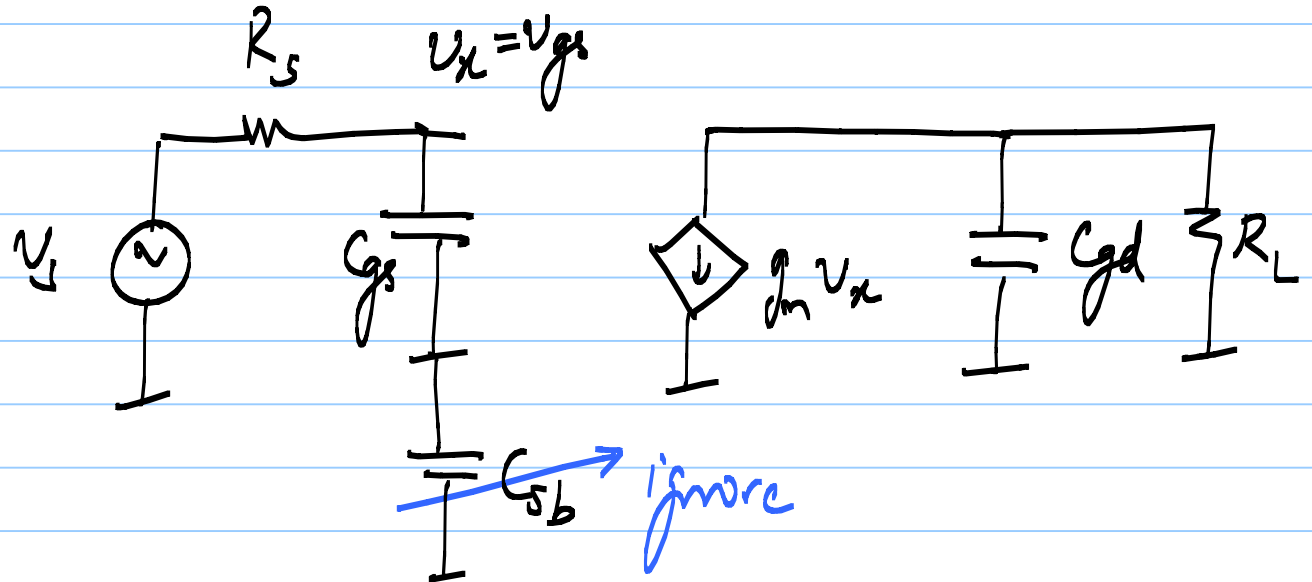 R_s
v_x = v_gs
v_s
C_gs
g_m v_x
C_gd
R_L
C_sb
ignore